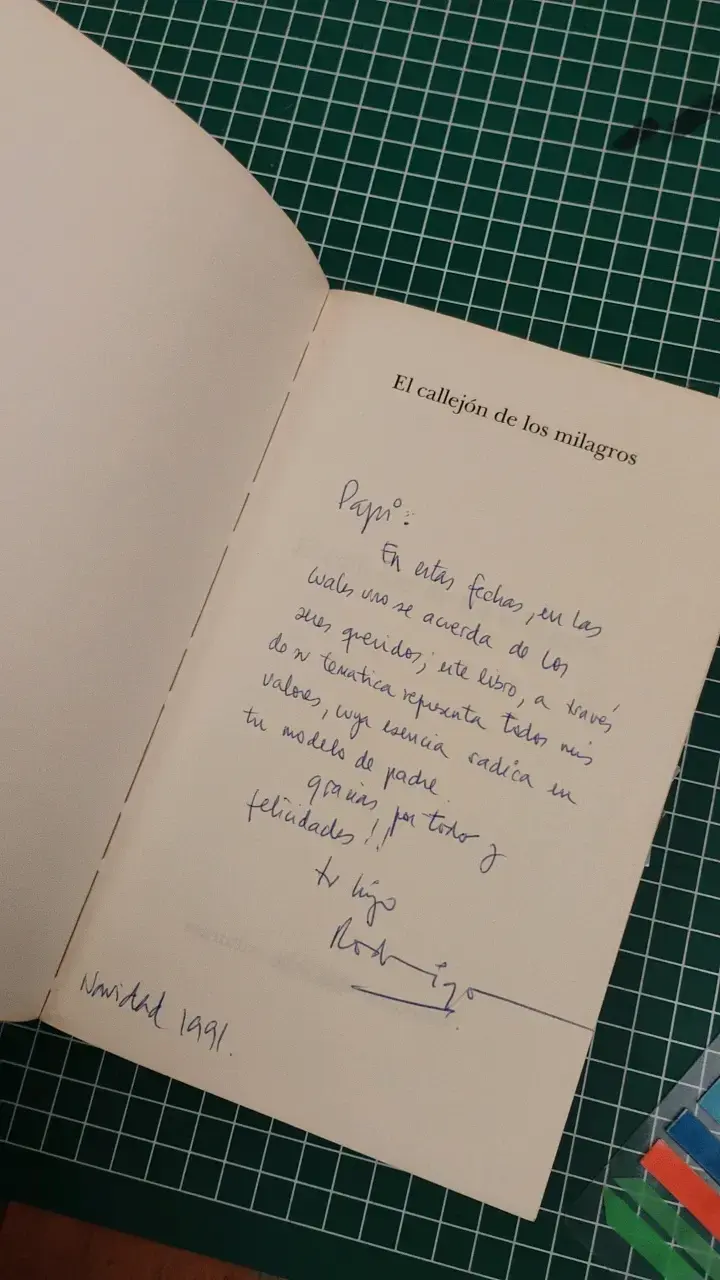 El callejón de los milagros
Papi:
En estas fechas, en las
cuales uno se acuerda de los
seres queridos; este libro, a través
de su temática representa todos mis
valores, cuya esencia radica en
tu modelo de padre.
gracias por todo y
felicidades!!
tu hijo
Rodrigo
Navidad 1991.